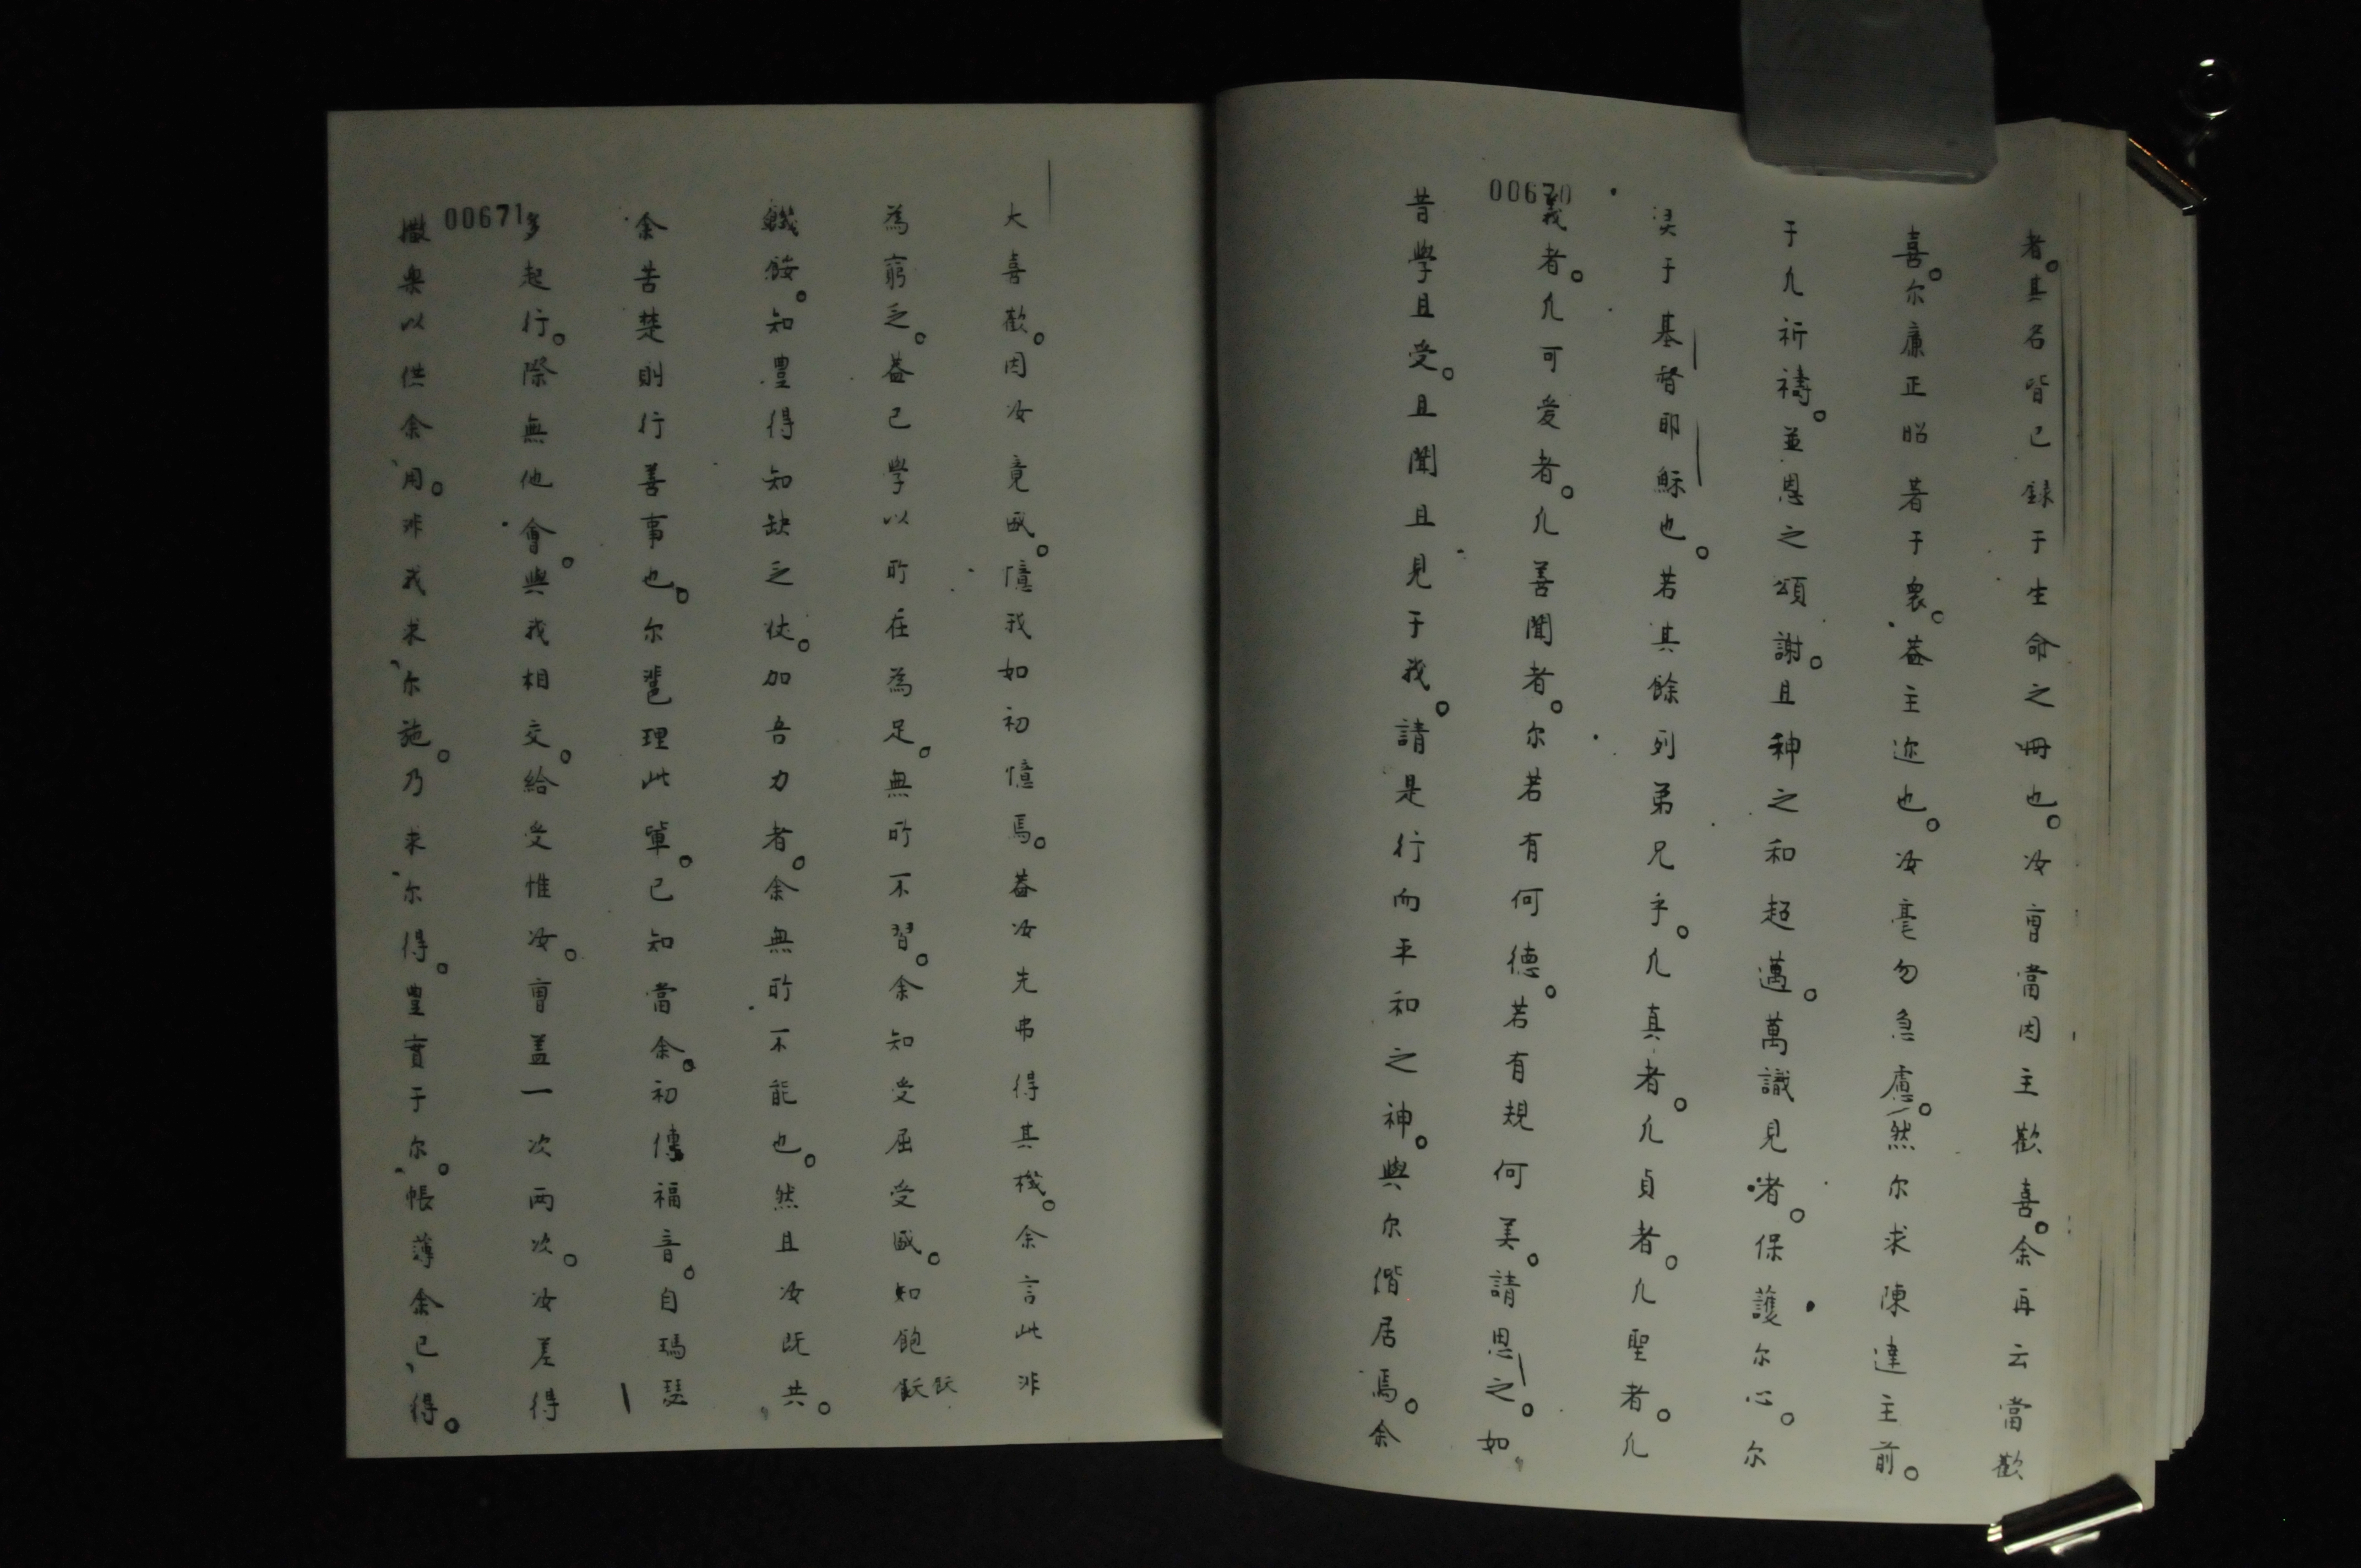 00670
者。其名皆已録于生命之冊也。汝曹當因主歡喜。余再云當歡
喜。尔廉正昭著于衆。葢主迩也。汝毫勿急慮。然尔求陳達主前。
于凢祈禱。並恩之頌謝。且神之和超邁。萬識見者。保護尔心。尔
灵于基督耶穌也。若其餘列弟兄乎。凢真者。凢貞者。凢聖者。凢
義者。凢可爱者。凢善聞者。尔若有何德。若有規何美。請思之。如
昔學且受。且聞且見于我。請是行而平和之神。與尔偕居焉。余
00671
大喜歡。因汝竟盛。憶我如初憶焉。葢汝先弗得其機。余言此非
為窮乏。葢已學以所在為足。無所不習。余知受屈受盛。知飽飫
饑餒。知豊得知缺乏忲。加吾力者。余無所不能也。然且汝既共。
余苦楚則行善事也。尔輩理此軰。已知當余。初傳福音。自瑪瑟
多起行。際無他會。與我相交。給受惟汝。曹盖一次兩次。汝差得
撒奥以供余用。非我求尔施。乃求尔得。豊實于尔。帳薄余已得。